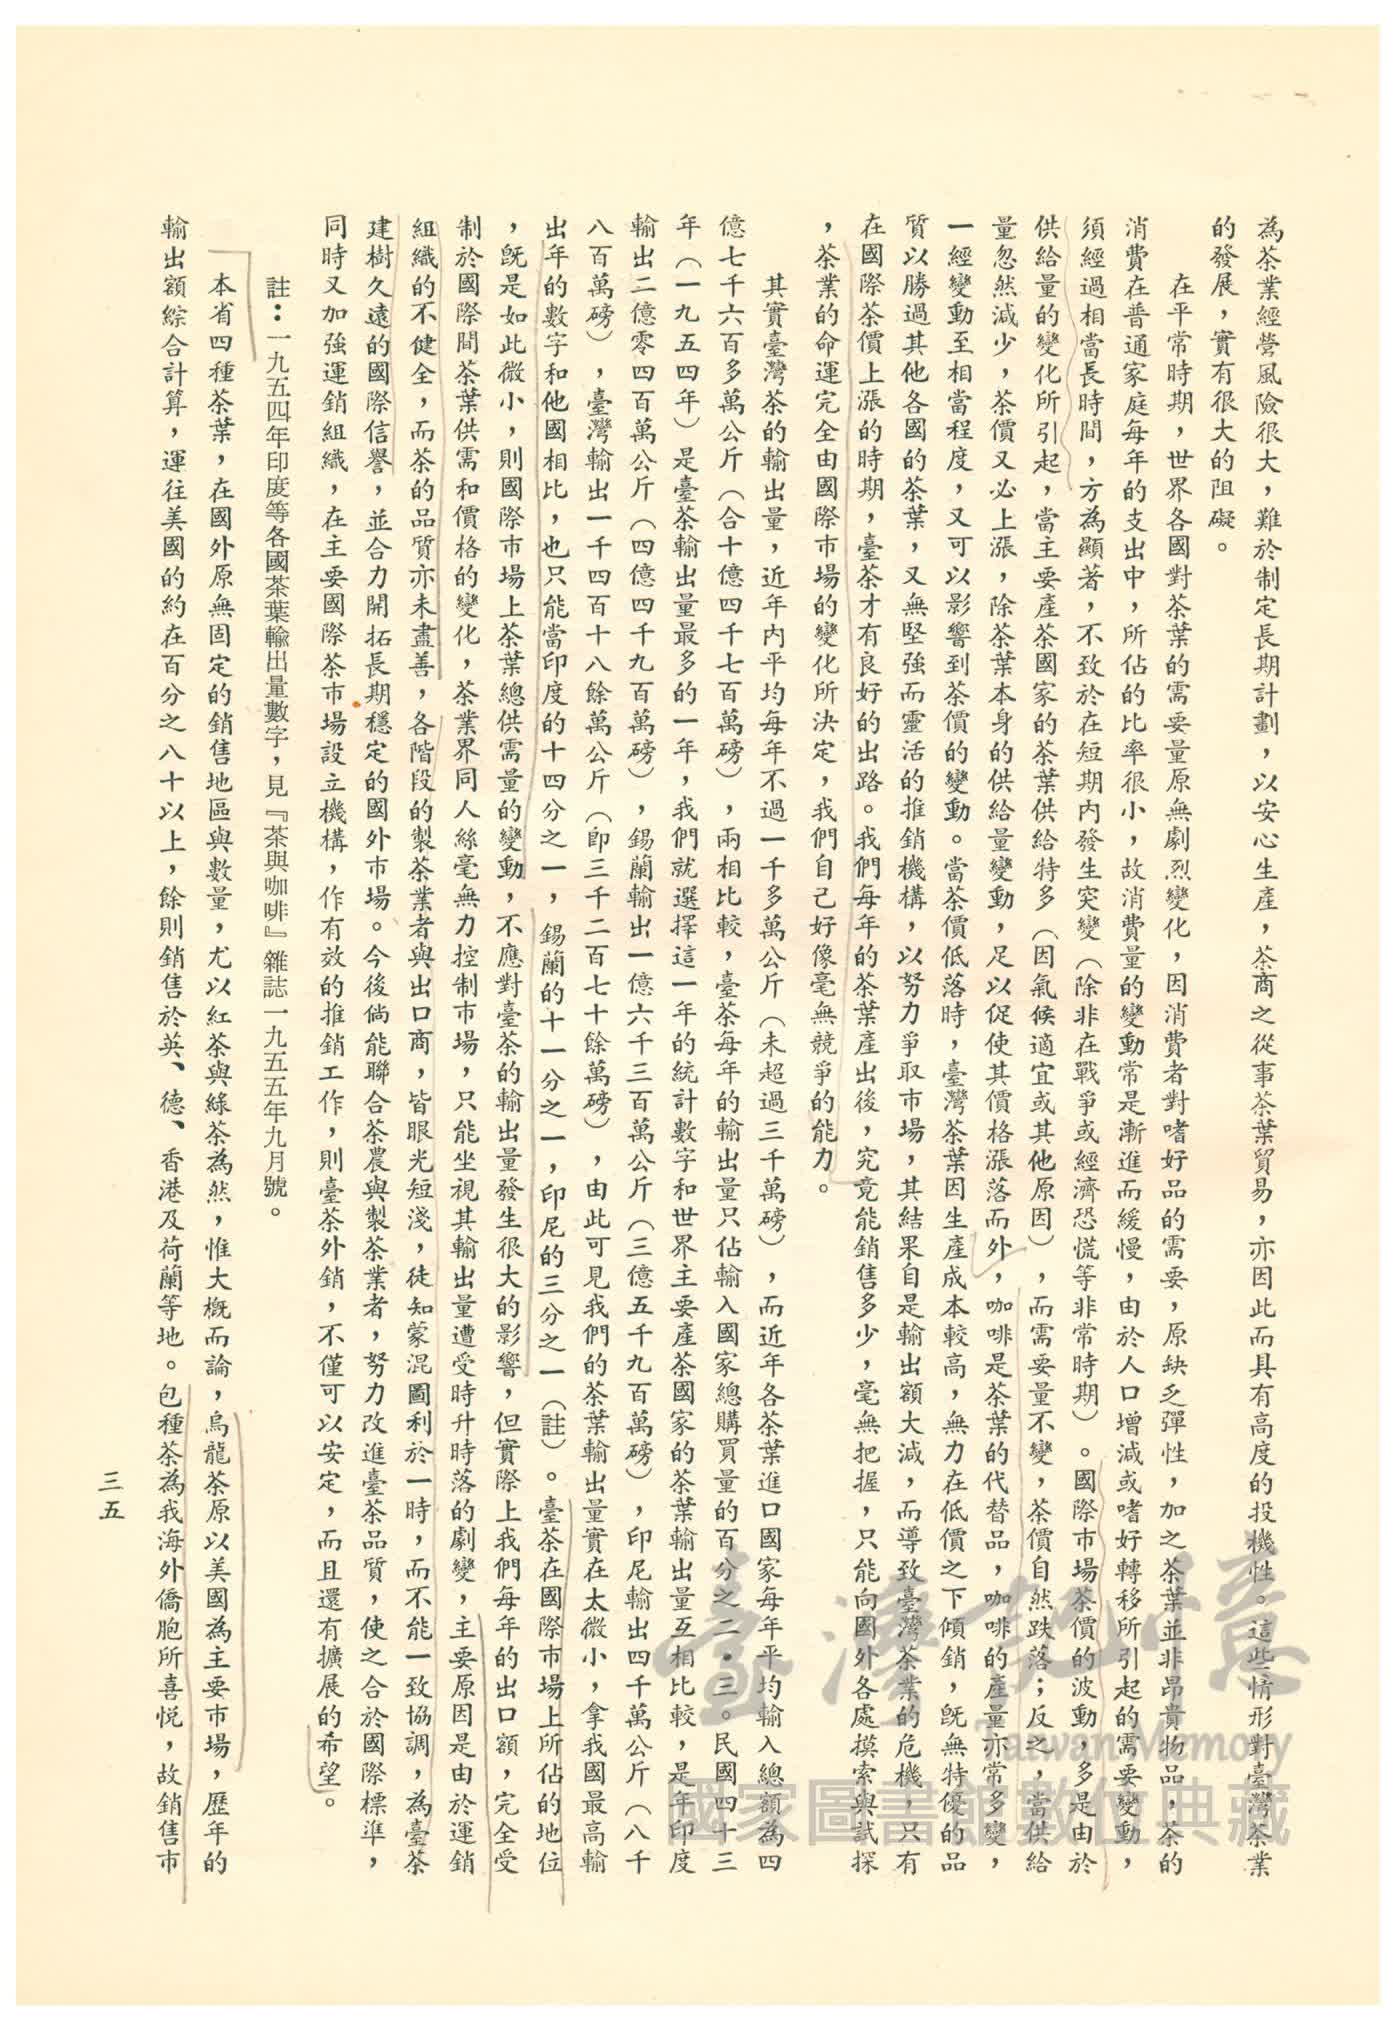 為茶業經營風險很大，難於制定長期計劃，以安心生產，茶商之從事茶葉貿易，亦因此而具有高度的投機性。這些情形對臺灣茶業
的發展，實有很大的阻礙。
在平常時期，世界各國對茶葉的需要量原無劇烈變化，因消費者對嗜好品的需要，原缺乏彈性，加之茶葉並非昂貴物品，茶的
消費在普通家庭每年的支出中，所佔的比率很小，故消費量的變動常是漸進而緩慢，由於人口增減或嗜好轉移所引起的需要變動，
須經過相當長時間，方為顯著，不致於在短期內發生突變（除非在戰爭或經濟恐慌等非常時期）。國際市場茶價的波動，多是由於
供給量的變化所引起，當主要產茶國家的茶葉供給特多（因氣候適宜或其他原因），而需要量不變，茶價自然跌落；反之，當供給
量忽然減少，茶價又必上漲，除茶葉本身的供給量變動，足以促使其價格漲落而外，咖啡是茶葉的代替品，咖啡的產量亦常多變，
一經變動至相當程度，又可以影響到茶價的變動。當茶價低落時，臺灣茶葉因生產成本較高，無力在低價之下傾銷，既無特優的品
質以勝過其他各國的茶葉，又無堅強而靈活的推銷機構，以努力爭取市場，其結果自是輸出額大減，而導致臺灣茶業的危機，只有
在國際茶價上漲的時期，臺茶才有良好的出路。我們每年的茶葉產出後，究竟能銷售多少，毫無把握，只能向國外各處摸索與試探
，茶業的命運完全由國際市場的變化所決定，我們自己好像毫無競爭的能力。
其實臺灣茶的輸出量，近年內平均每年不過一千多萬公斤（未超過三千萬磅），而近年各茶葉進口國家每年平均輸入總額為四
億七千六百多萬公斤（合十億四千七百萬磅），兩相比較，臺茶每年的輸出量只佔輸入國家總購買量的百分之二・三。民國四十三
年（一九五四年）是臺茶輸出量最多的一年，我們就選擇這一年的統計數字和世界主要產茶國家的茶葉輸出量互相比較，是年印度
輸出二億零四百萬公斤（四億四千九百萬磅），錫蘭輸出一億六千三百萬公斤（三億五千九百萬磅），印尼輸出四千萬公斤（八千
八百萬磅），臺灣輸出一千四百十八餘萬公斤（即三千二百七十餘萬磅），由此可見我們的茶葉輸出量實在太微小，拿我國最高輸
出年的數字和他國相比，也只能當印度的十四分之一，錫蘭的十一分之一，印尼的三分之一（註）。臺茶在國際市場上所佔的地位
，既是如此微小，則國際市場上茶葉總供需量的變動，不應對臺茶的輸出量發生很大的影響，但實際上我們每年的出口額，完全受
制於國際間茶葉供需和價格的變化，茶業界同人絲毫無力控制市場，只能坐視其輸出量遭受時升時落的劇變，主要原因是由於運銷
組織的不健全，而茶的品質亦未盡善，各階段的製茶業者與出口商，皆眼光短淺，徒知蒙混圖利於一時，而不能一致協調，為臺茶
建樹久遠的國際信譽，並合力開拓長期穩定的國外市場。今後倘能聯合茶農與製茶業者，努力改進臺茶品質，使之合於國際標準，
同時又加強運銷組織，在主要國際茶市場設立機構，作有效的推銷工作，則臺茶外銷，不僅可以安定，而且還有擴展的希望。
註：一九五四年印度等各國茶葉輸出量數字，見『茶與咖啡』雜誌一九五五年九月號。
本省四種茶葉，在國外原無固定的銷售地區與數量，尤以紅茶與綠茶為然，惟大概而論，烏龍茶原以美國為主要市場，歷年的
輸出額綜合計算，運往美國的約在百分之八十以上，餘則銷售於英、德、香港及荷蘭等地。包種茶為我海外僑胞所喜悅，故銷售市
三五
臺灣記憶
Taiwan Memory
國家圖書館數位典藏